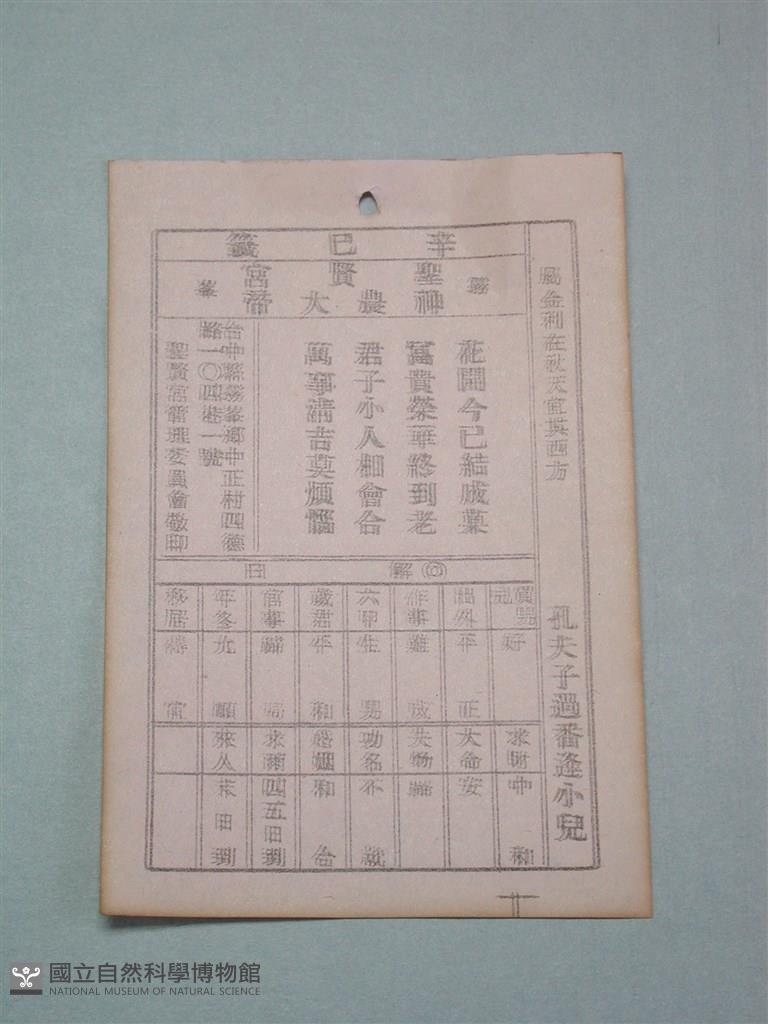 屬金利在秋天宜其西方
孔夫子過番逢小兒
辛巳籤
霧 聖賢宮 峯
神農大帝
花開今已結成菓
富貴榮華終到老
君子小人相會合
萬事清吉莫煩惱
台中縣霧峯鄉中正村四德
路一〇四巷一號
聖賢宮管理委員會敬印
◎解曰
買男兒 好
出外 平正
作事 難成
六甲 生男
歲君 平和
官事
年冬 允順
移居
求財 中和
大命 安
失物
功名 不
婚姻 和合
求雨 四五日到
來人 未日到
國立自然科學博物館
NATIONAL MUSEUM OF NATURAL SCIENCE